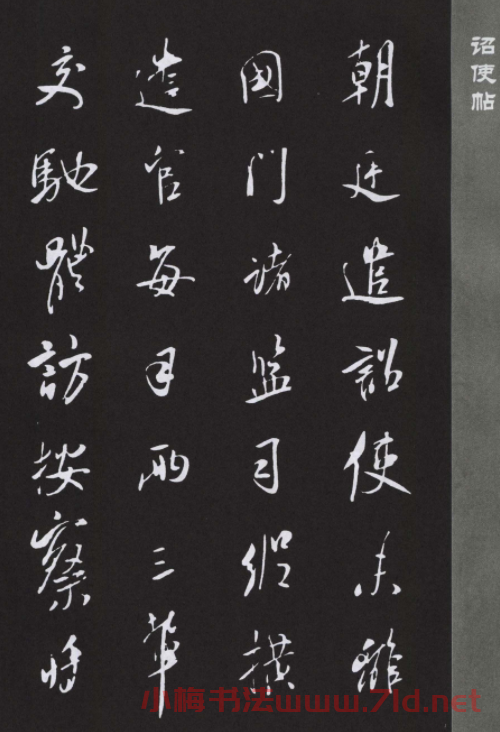 诏使帖
朝廷遣詔使未離
國門諸監司縱橫
遣官每日兩三輩
交馳體訪按察
小梅书法www.7ld.net